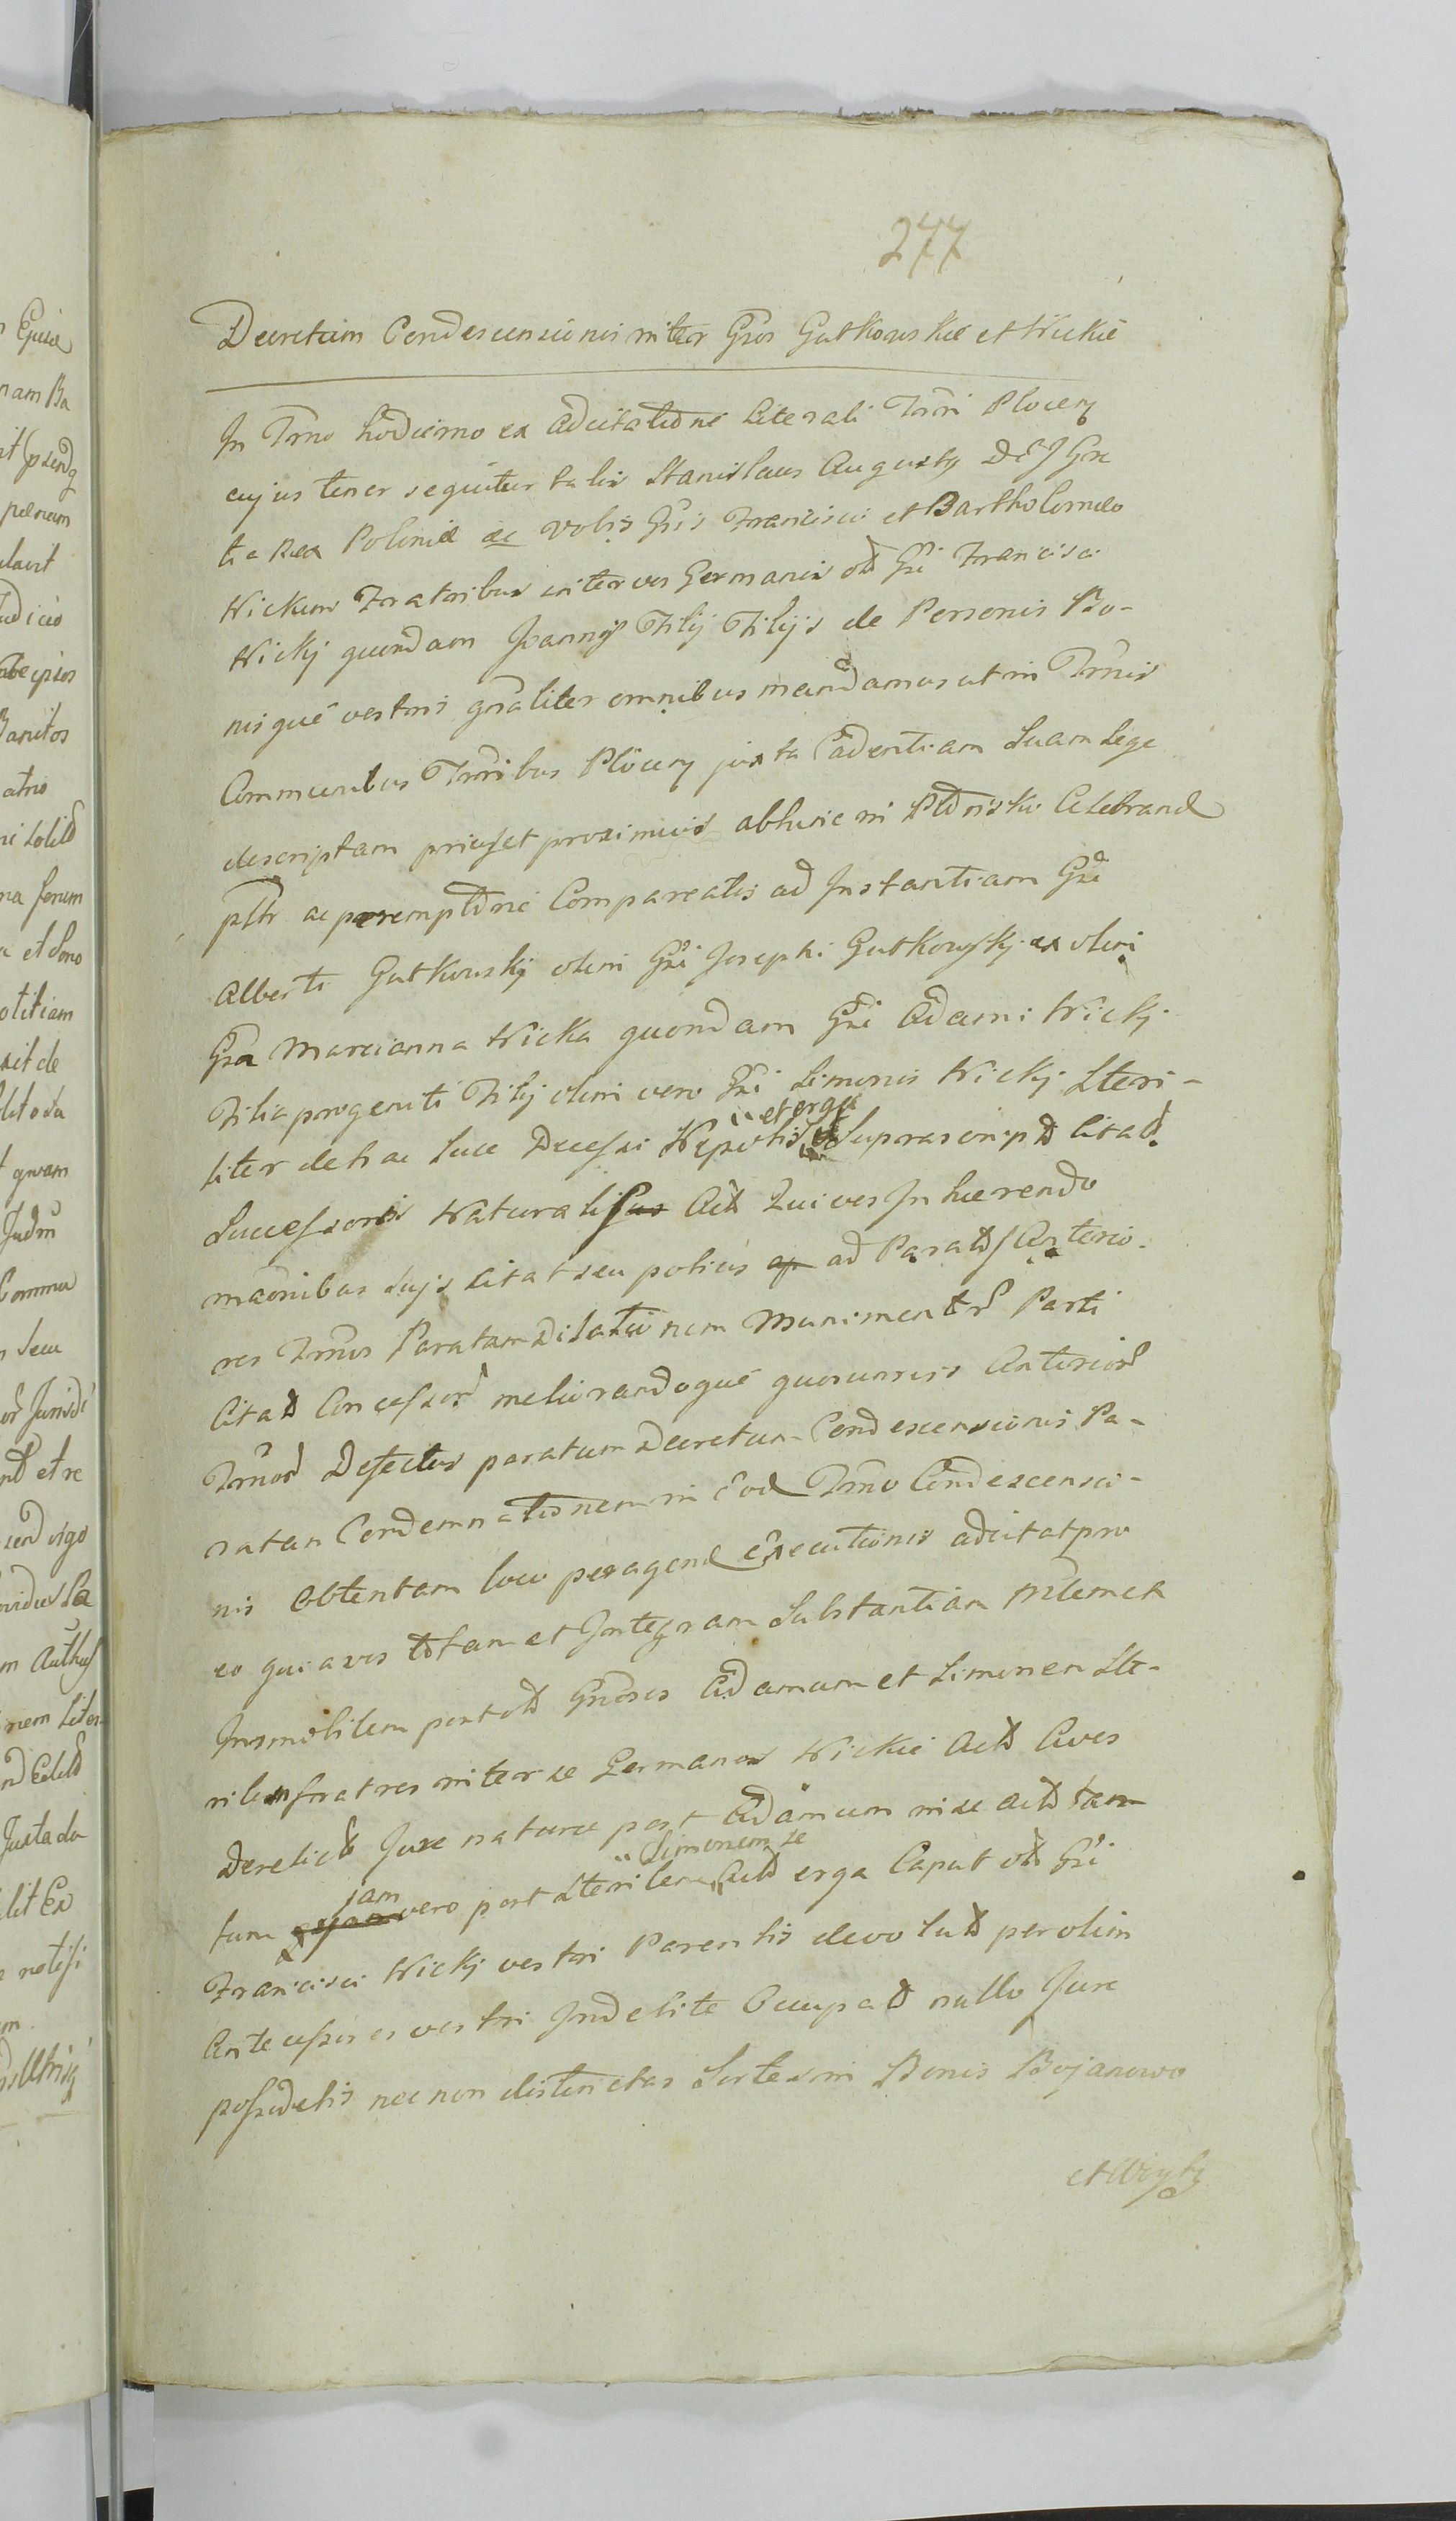 277
Decretum Condescensionis inter Gsos Gutkowskie et Wickie
In Trno hodierno ex Adcitatione Literali Trri Plocen
cujus tenor sequitur talis Stanislaus Augusty DEJ Gra
tia Rex Poloniæ &c Vobis Gsis Francisco et Bartholomeo
Wickim Fratribus inter vos Germanis od Gsi Francisci
Wickj quondam Joannis Filij Filijs de Personis Bo-
nisque vestris gnaliter omnibus mandamus ut in Trnis
Communibus Trribus Plocen juxta Cadentiam Suam Lege
descriptam prius et proximius abhinc in Płońsko Celebrand
pltr ac peremptorie Compareatis ad Instantiam Gsi
Alberti Gutkowskj olim Gsi Josephi Gutkowskj ex olim
Gsa Marcianna Wicka quondam Gsi Adami Wickj
Filia progeniti Filij olim vero Gsi Simonis Wickj Steri-
liter de hac luce Decessi Nepotis et erga Suprascript Citat
Successoris Naturalis Act Qui vos Inhærendo
maonibus Sujs Citat seu potius ap ad Parat Anterio-
res Trnos Paratam Dilationem Munimentor Parti
Citat Concessor meliorandoque quorumvis Anterior
Trnor Defectus paratum Decretum Condescensionis Pa-
ratam Condemnationem in Eod Trno Condescensio-
nis Obtentam loco peragend Executionis adcitat pro
eo quia vos totam et Integram Substantiam Mlem et
Immobilem post od Gnosos Adamum et Simonem Ste-
riles fratres inter se Germanos Wickie Act Aves
Derelict Jure naturæ post Adamum in se act tan-
tum jam vero post Sterilem Simonem se Act erga Caput od Gsi
Francisci Wickj vestri Parentis devolut per olim
Antecessores vestri Indebite Occupat nullo Jure
possidetis nec non distinctas Sortes in Bonis Bojanowo
et Woyty